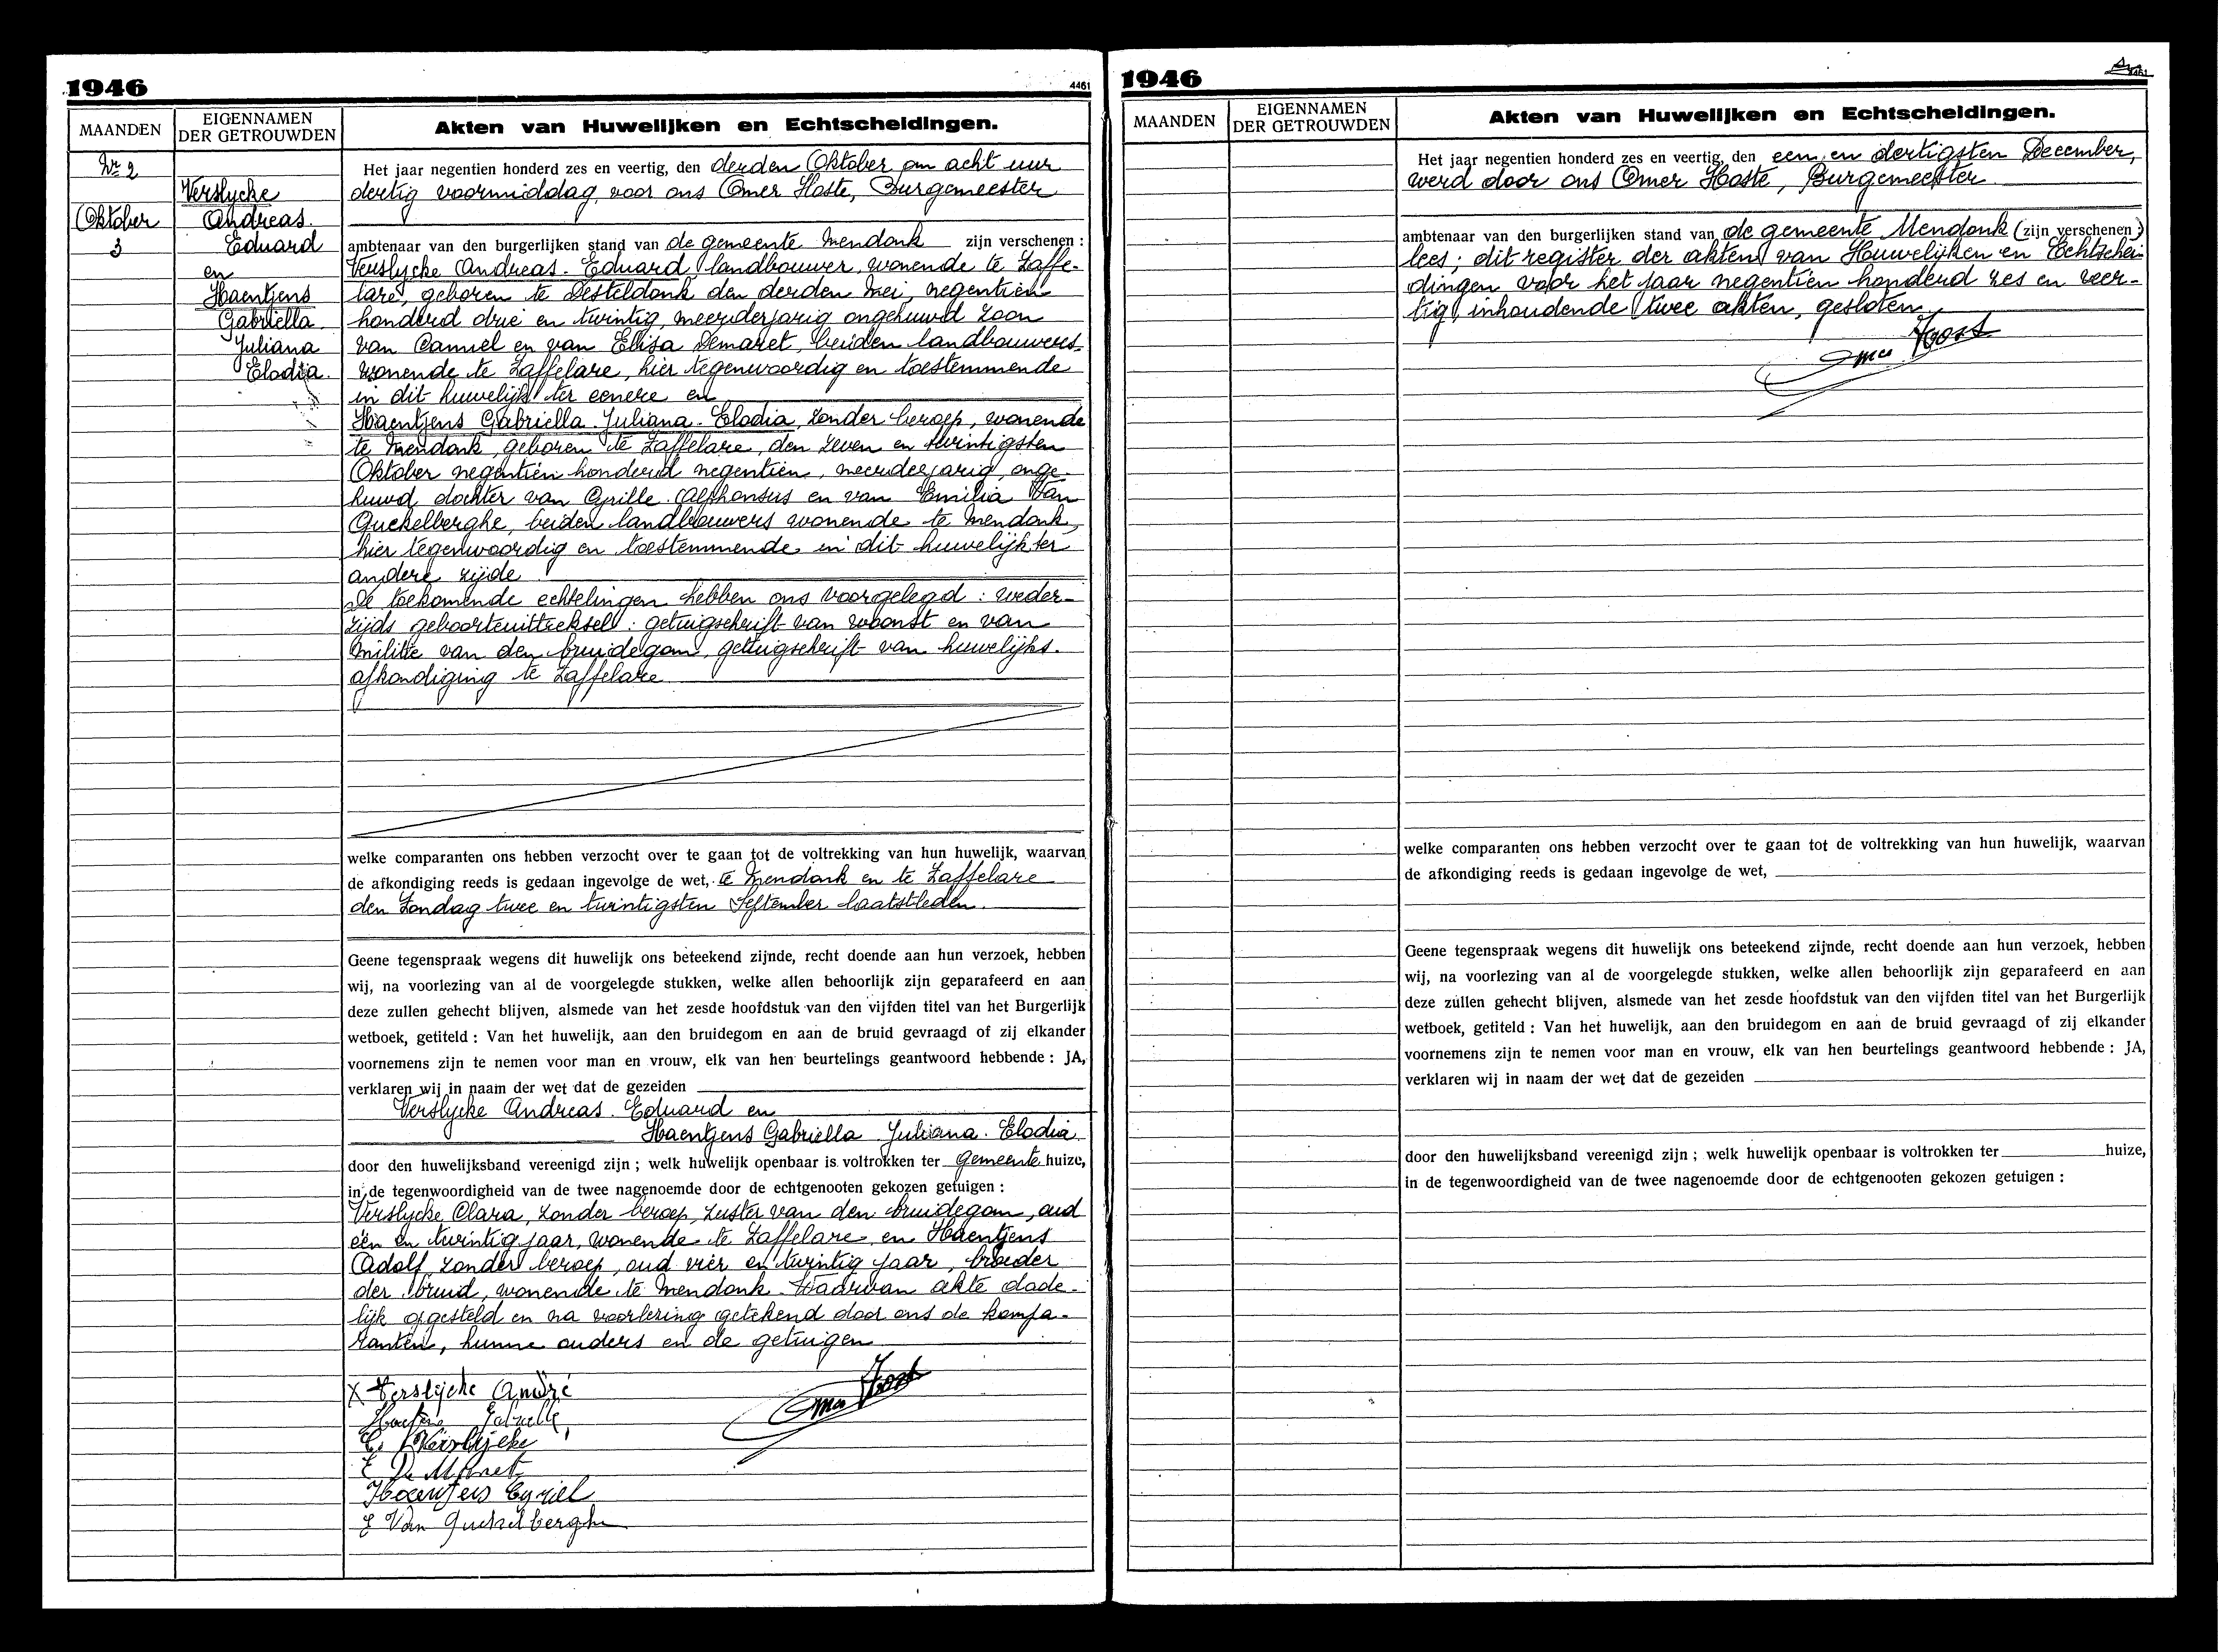 1946
4461
MAANDEN
EIGENNAMEN
DER GETROUWDEN
Akten van Huwelijken en Echtscheidingen.
Nr 2
Oktober
3
Verslycke
Andreas.
Eduard
en
Haentjens
Gabriella
Juliana
Elodia.
Het jaar negentien honderd zes en veertig, den derden Oktober om acht uur
dertig voormiddag, voor ons Omer Hoste, Burgemeester
ambtenaar van den burgerlijken stand van de gemeente Mendonk zijn verschenen :
Verslycke Andreas. Eduard landbouwer, wonende te Zaffe-
lare, geboren te Desteldonk den derden Mei, negentien
honderd drie en twintig, meerderjarig ongehuwd zoon
van Camiel en van Elisa Demaret, beiden landbouwers,
wonende te Zaffelare, hier tegenwoordig en toestemmende
in dit huwelijk ter eenere en
Haentjens Gabriella. Juliana. Elodia, zonder beroep, wonende
te Mendonk, geboren te Zaffelare, den zeven en twintigsten
Oktober negentien honderd negentien, meerderjarig, onge-
huwd, dochter van Cyrille. Alphonsus en van Emilia Van
Quekelberghe, beiden landbouwers wonende te Mendonk,
hier tegenwoordig en toestemmende in dit huwelijk ter
andere zijde
De toekomende echtelingen hebben ons voorgelegd : weder-
zijds geboorteuittreksel : getuigschrift van woonst en van
militie van den bruidegom, getuigschrift van huwelijks.
afkondiging te Zaffelare
welke comparanten ons hebben verzocht over te gaan tot de voltrekking van hun huwelijk, waarvan
de afkondiging reeds is gedaan ingevolge de wet, te Mendonk en te Zaffelare
den Zondag twee en twintigsten September laatstleden.
Geene tegenspraak wegens dit huwelijk ons beteekend zijnde, recht doende aan hun verzoek, hebben
wij, na voorlezing van al de voorgelegde stukken, welke allen behoorlijk zijn geparafeerd en aan
deze zullen gehecht blijven, alsmede van het zesde hoofdstuk van den vijfden titel van het Burgerlijk
wetboek, getiteld : Van het huwelijk, aan den bruidegom en aan de bruid gevraagd of zij elkander
voornemens zijn te nemen voor man en vrouw, elk van hen beurtelings geantwoord hebbende : JA,
verklaren wij in naam der wet dat de gezeiden
Verslycke Andreas. Eduard en
Haentjens Gabriella Juliana. Elodia
door den huwelijksband vereenigd zijn ; welk huwelijk openbaar is voltrokken ter gemeente huize,
in de tegenwoordigheid van de twee nagenoemde door de echtgenooten gekozen getuigen :
Verslycke Clara, zonder beroep, zuster van den bruidegom, oud
één en twintig jaar, wonende te Zaffelare en Haentjens
Adolf zonder beroep, oud vier en twintig jaar, broeder
der bruid, wonende te Mendonk. Waarvan akte dade-
lijk opgesteld en na voorlezing getekend door ons de kompa-
ranten, hunne ouders en de getuigen
X Verslycke André
Omer Host
Haentjens Gabrielle
C. Verslycke
E De Maret
Haentjens Cyriel
E Van Quekelberghe
1946
MAANDEN
EIGENNAMEN
DER GETROUWDEN
Akten van Huwelijken en Echtscheidingen.
Het jaar negentien honderd zes en veertig, den een en dertigsten December,
werd door ons Omer Hoste, Burgemeester
ambtenaar van den burgerlijken stand van de gemeente Mendonk (zijn verschenen:)
lees; dit register der akten van Houwelijken en Echtschei-
dingen voor het jaar negentien honderd zes en veer-
tig, inhoudende twee akten, gesloten
Omer Host
welke comparanten ons hebben verzocht over te gaan tot de voltrekking van hun huwelijk, waarvan
de afkondiging reeds is gedaan ingevolge de wet,
Geene tegenspraak wegens dit huwelijk ons beteekend zijnde, recht doende aan hun verzoek, hebben
wij, na voorlezing van al de voorgelegde stukken, welke allen behoorlijk zijn geparafeerd en aan
deze zullen gehecht blijven, alsmede van het zesde hoofdstuk van den vijfden titel van het Burgerlijk
wetboek, getiteld : Van het huwelijk, aan den bruidegom en aan de bruid gevraagd of zij elkander
voornemens zijn te nemen voor man en vrouw, elk van hen beurtelings geantwoord hebbende : JA,
verklaren wij in naam der wet dat de gezeiden
door den huwelijksband vereenigd zijn ; welk huwelijk openbaar is voltrokken ter huize,
in de tegenwoordigheid van de twee nagenoemde door de echtgenooten gekozen getuigen :